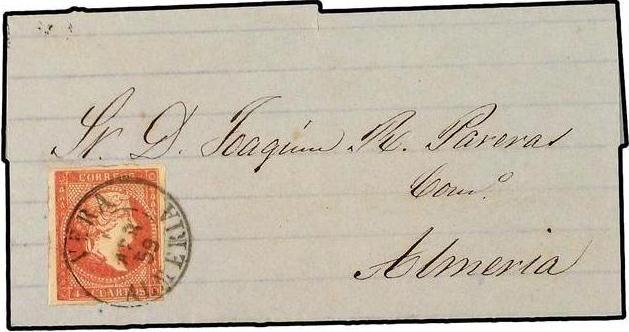 Sr. D. Joaquin R. Pareras
Com.º
Almeria
CORREOS
VERA
ALMERIA
59
4 CUARTOS